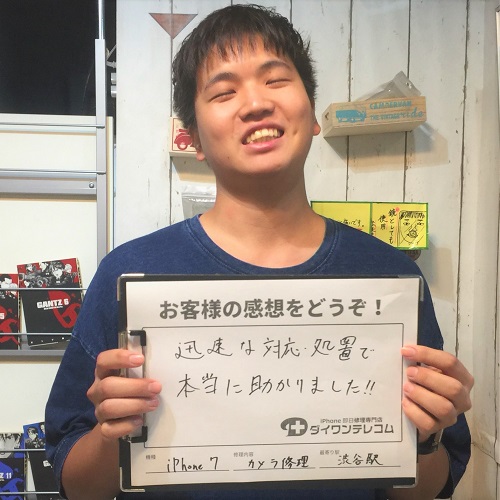 お客様の感想をどうぞ！
迅速な対応・処置で
本当に助かりました!!
iPhone 即日修理専門店
ダイワンテレコム
機種 iPhone 7 修理内容 カメラ修理 最寄り駅 渋谷駅
GANTZ 6
鏡としても
使用